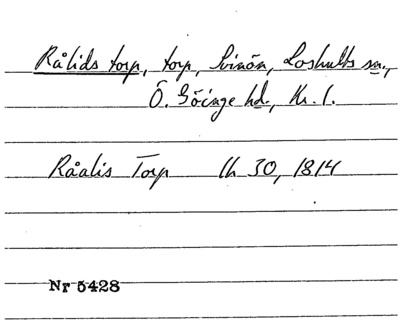 Rålids torp, torp, Svinön, Loshults sn.,
Ö. Göinge hd., Kr. l.
Råalis Torp lh 30, 1814
Nr 5428